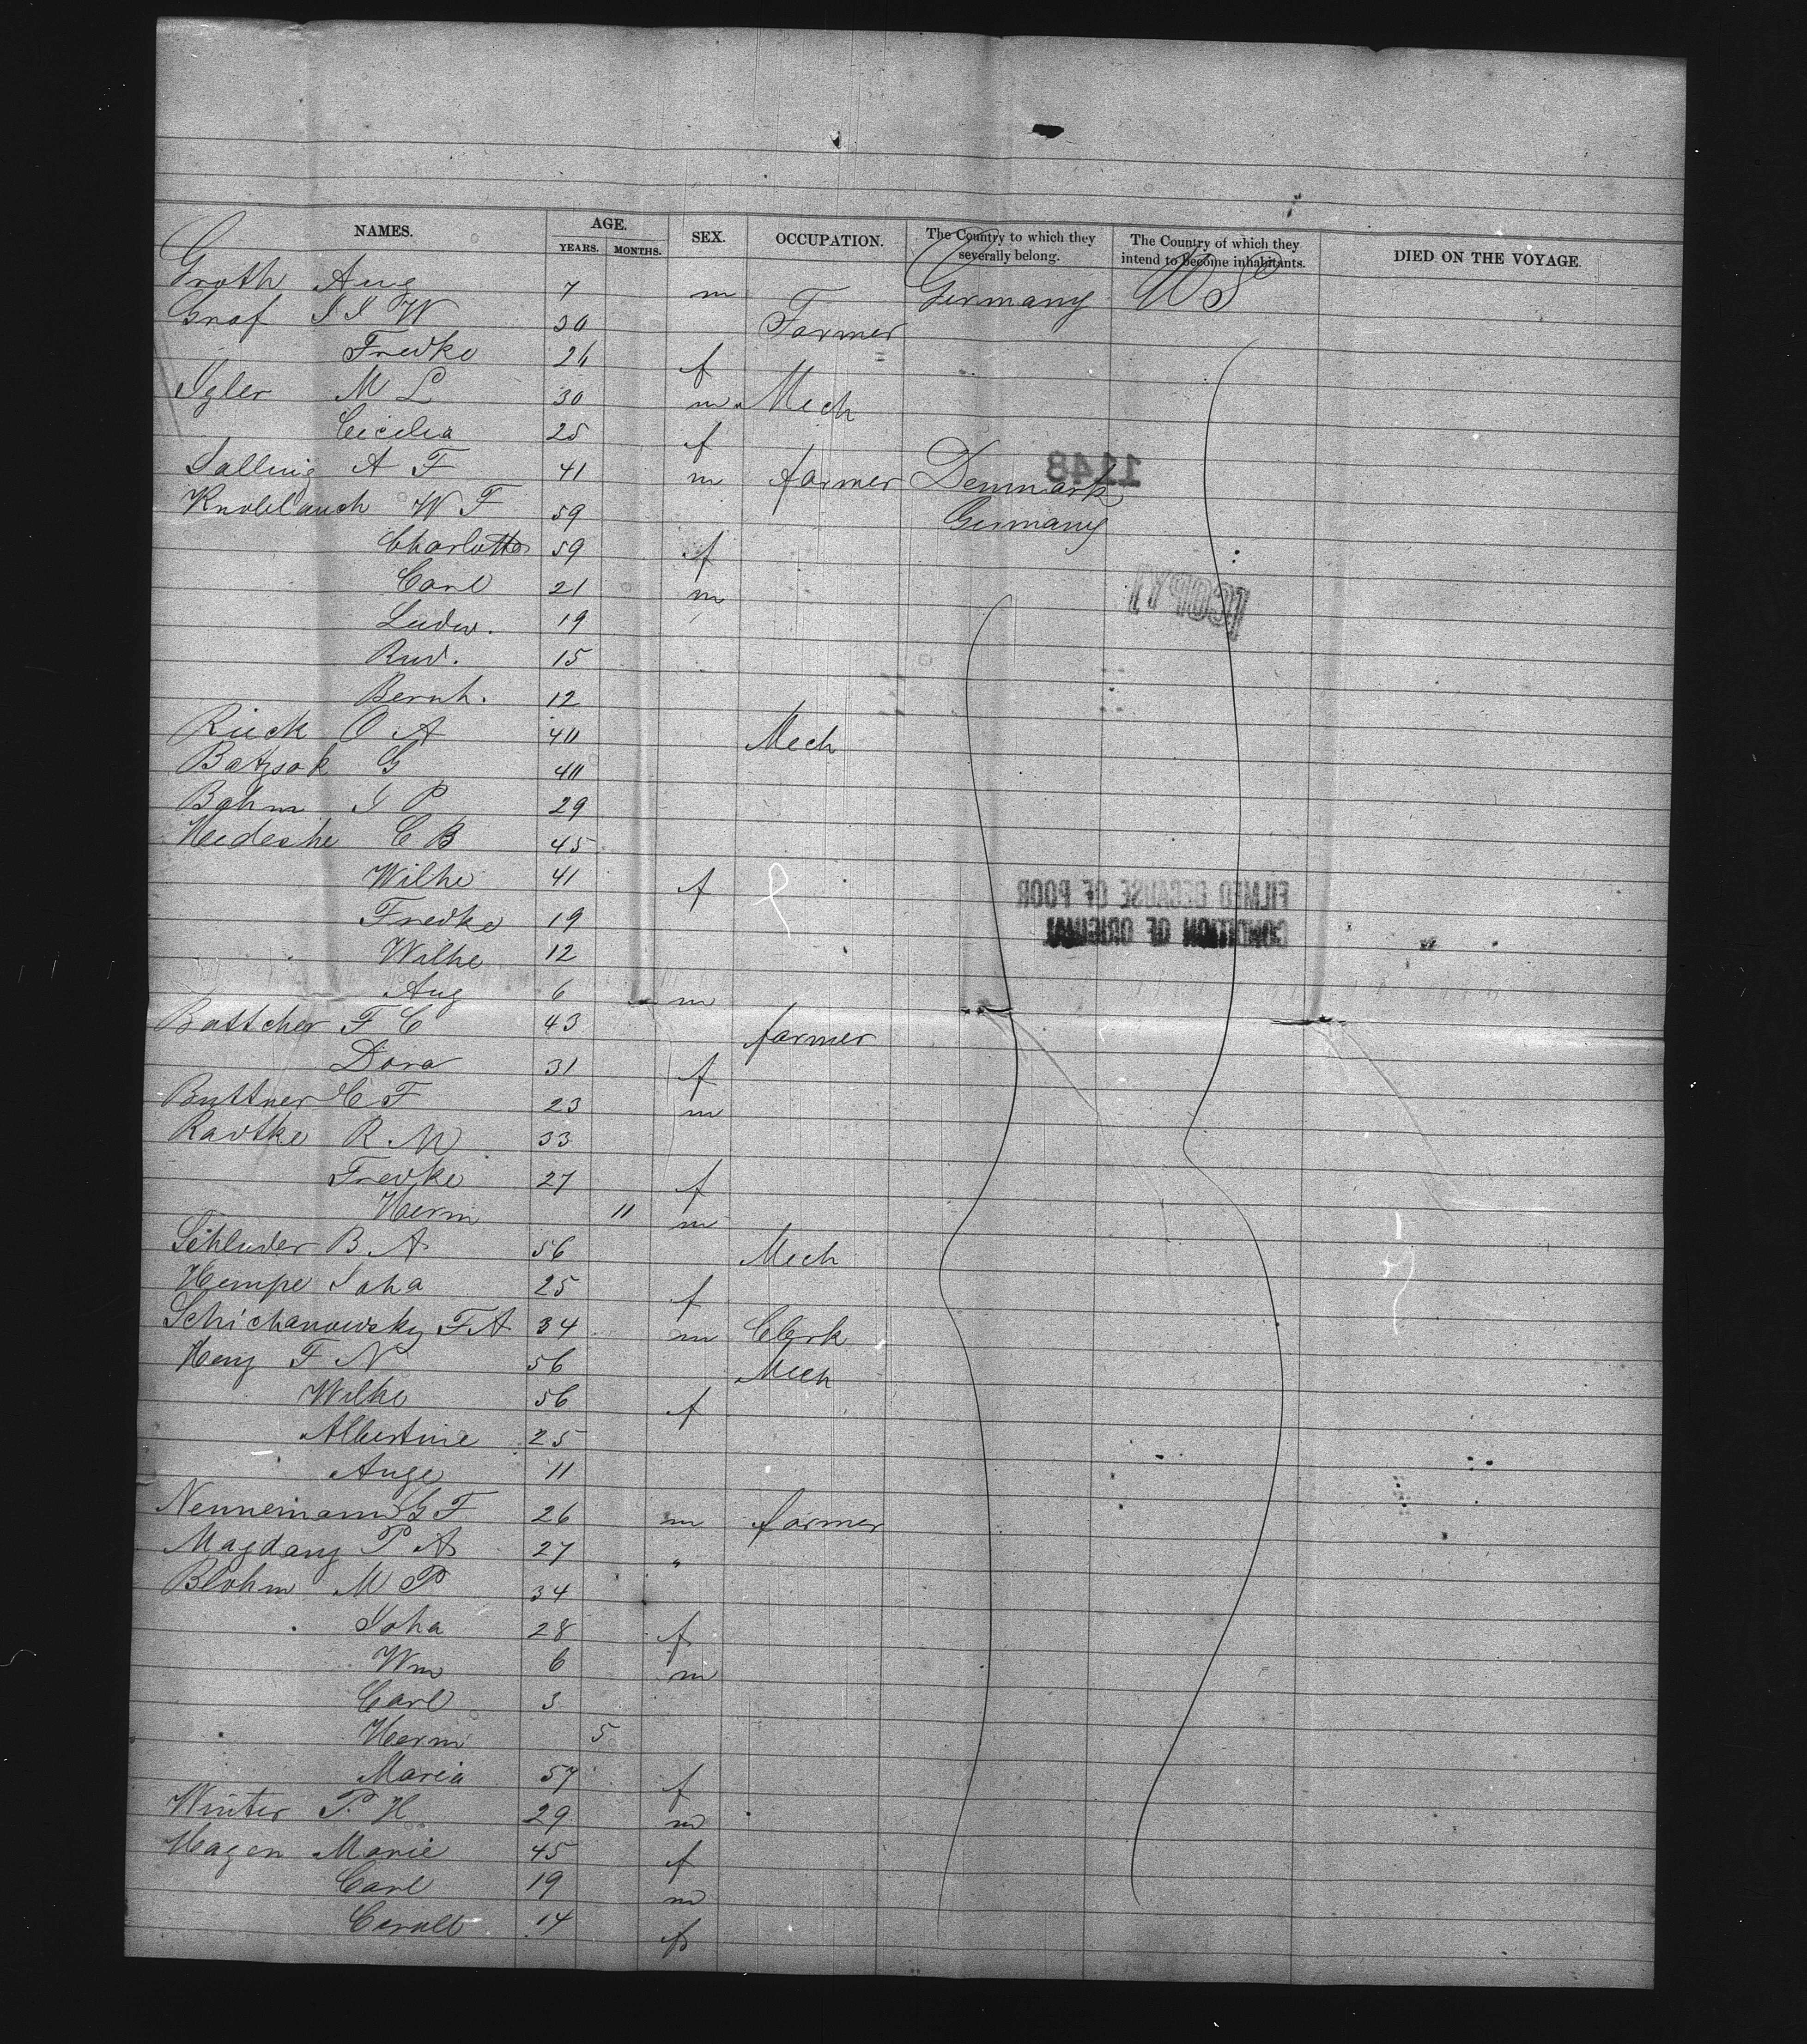 NAMES. AGE. SEX. OCCUPATION. The Country to which they severally belong. The Country of which they intend to become inhabitants. DIED ON THE VOYAGE.
YEARS. MONTHS.
Groth Aug 7 m Germany U S
Graf I I W 30 Farmer
Fredke 26 f
Igler M L 30 m Mech
Cecilia 25 f
Salling A F 41 m farmer Denmark
1148
Knoblauch W F 59 Germany
Charlotte 59 f
Carl 21 m
COPY
Ludw. 19
Rud. 15
Bernh. 12
Rieck O A 40 Mech
Batzsak G 40
Bohm I P 29
Hedeche C B 45
Wilhe 41 f
FILMED BECAUSE OF POOR
CONDITION OF ORIGINAL
Fredke 19
Wilhe 12
Aug 6 m
Bottcher F C 43 farmer
Dora 31 f
Buttner C F 23 m
Radtke R M 33
Fredke 27 f
Herm 11 m
Schluder B A 56 Mech
Hempe Joha 25 f
Schichanowsky F A 34 m Clerk
Heny F N 56 Mech
Wilhe 56 f
Albertine 25
Auge 11
Nennemann G F 26 m farmer
Magdany P A 27 "
Blohm M P 34
Joha 28 f
Wm 6 m
Carl 3
Herm 5
Maria 57 f
Winter P. H. 29 m
Hagen Marie 45 f
Carl 19 m
14 f